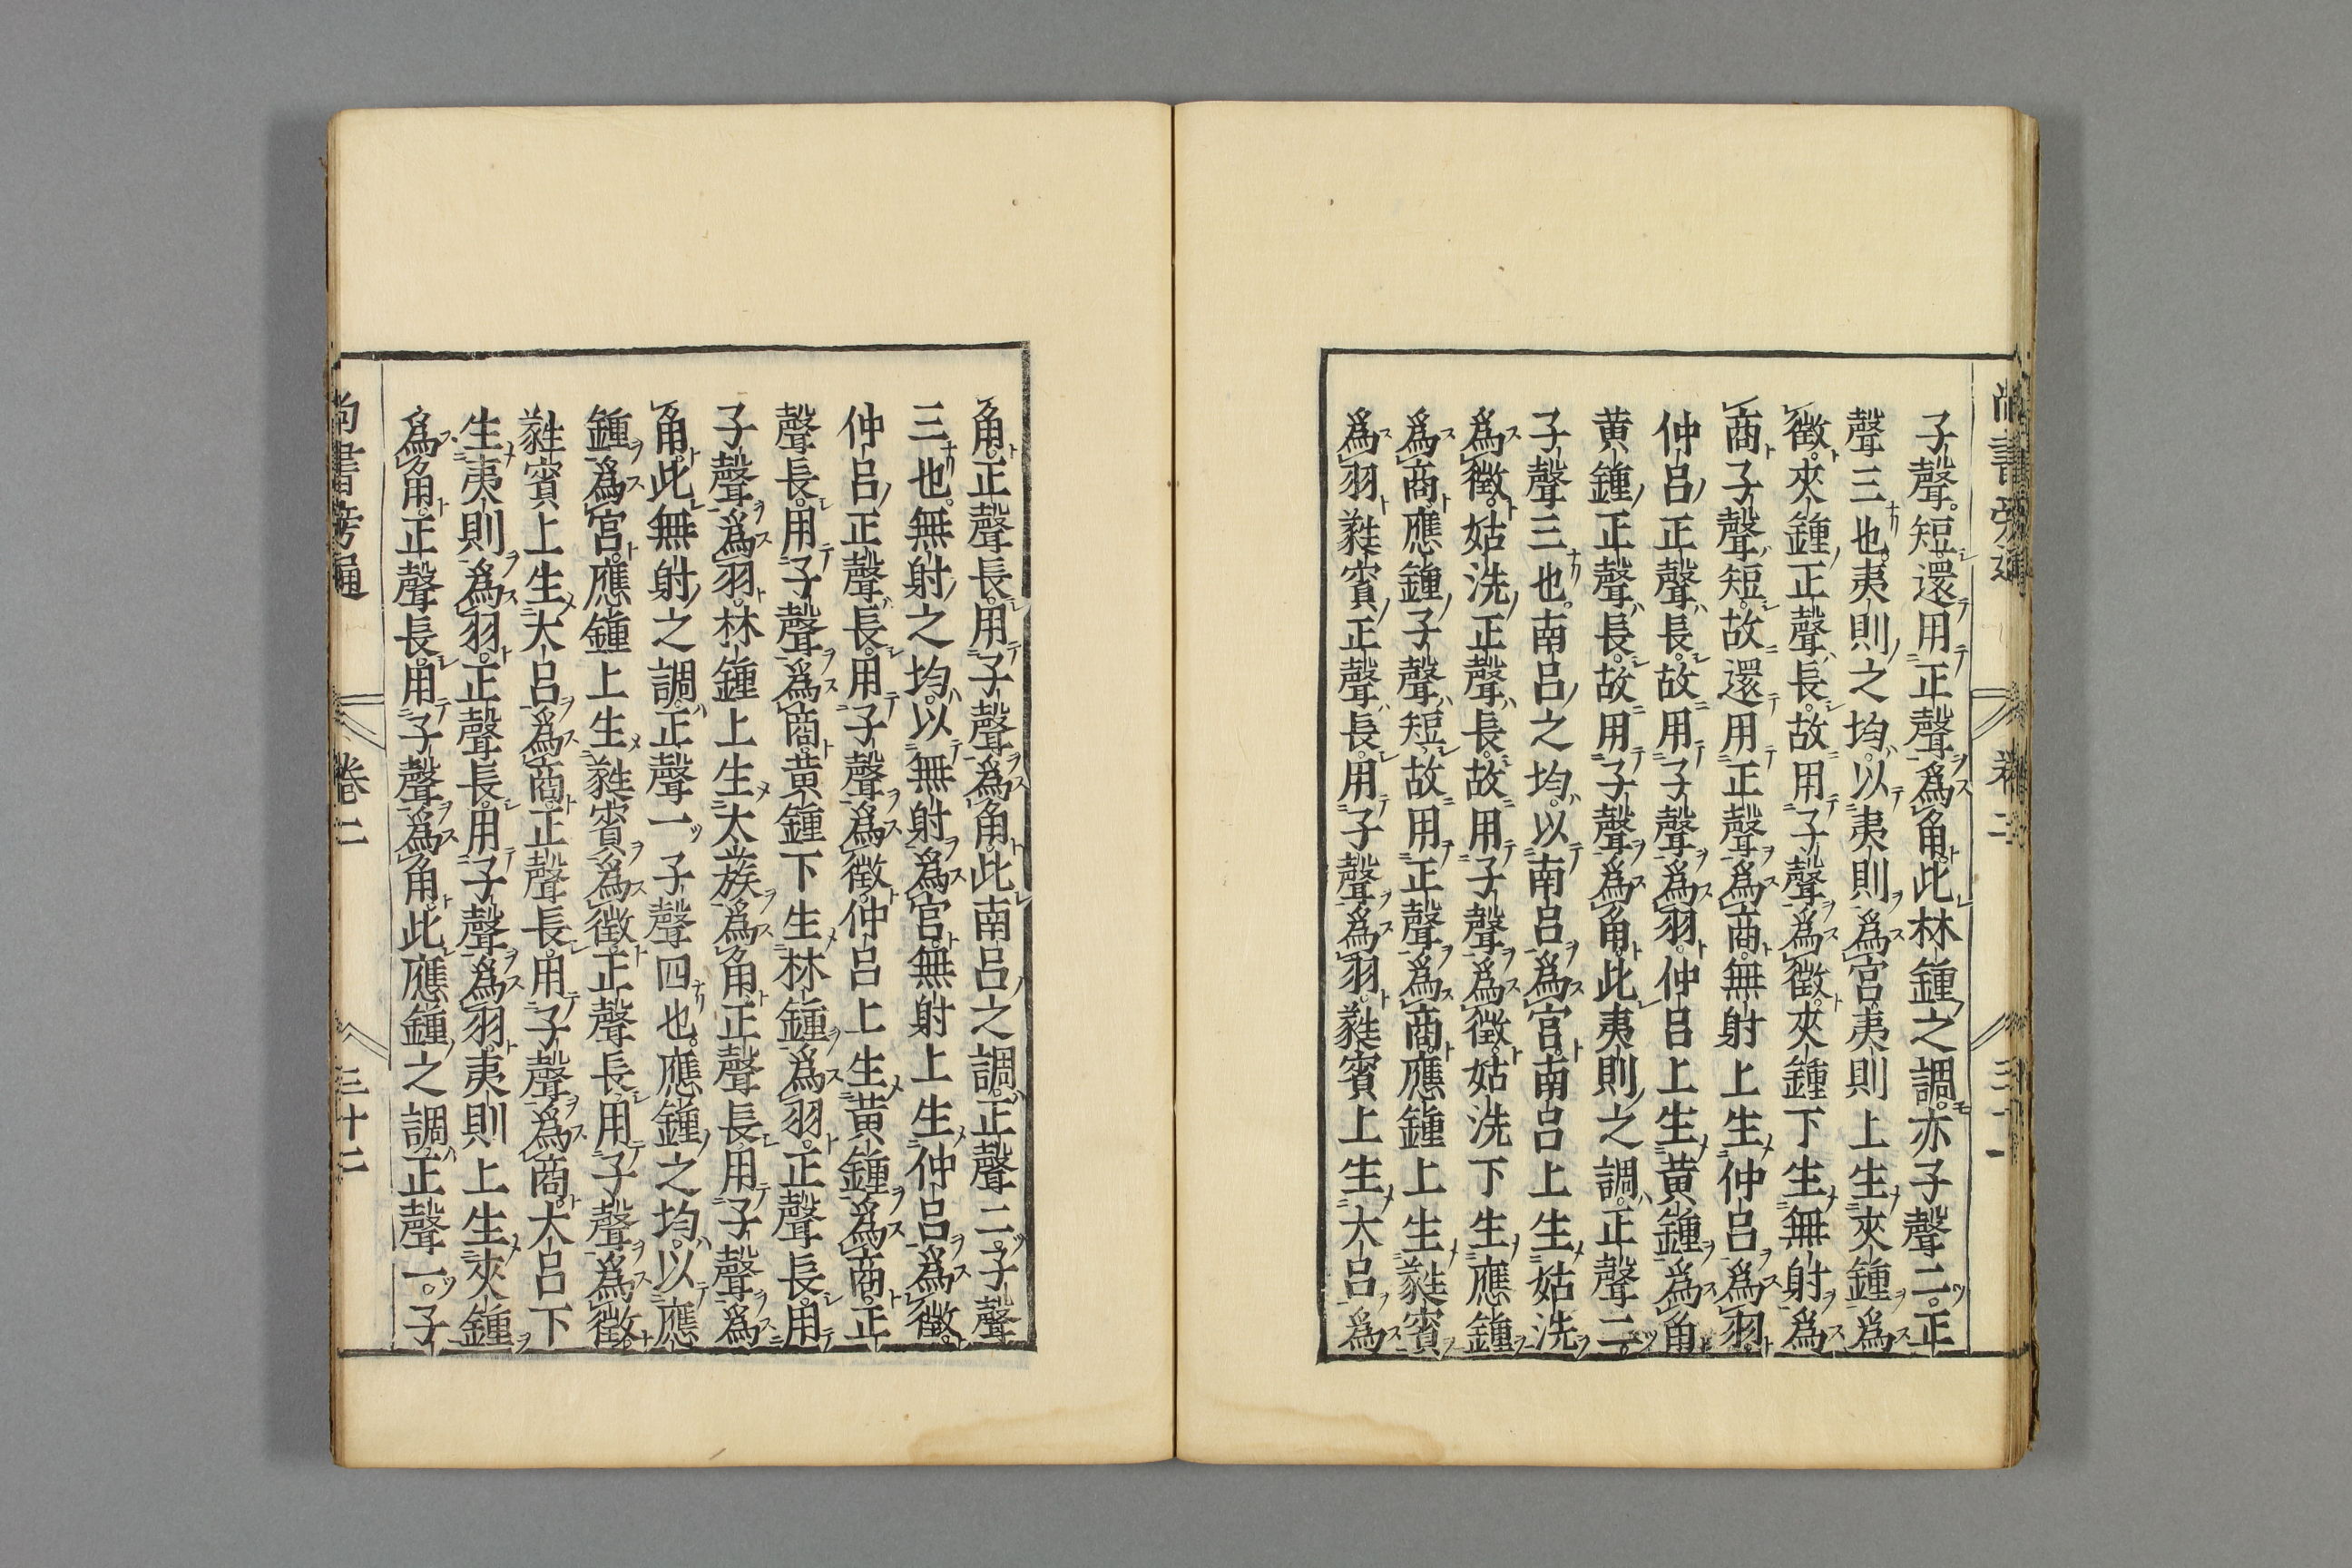 子聲短還用正聲爲角此林鍾之調亦子聲二正
聲三也夷則之均以夷則爲宮夷則上生夾鍾爲
徵夾鍾正聲長故用子聲爲徵夾鍾下生無射爲
商子聲短故還用正聲爲商無射上生仲呂爲羽
仲呂正聲長故用子聲爲羽仲呂上生黃鍾爲角
黃鍾正聲長故用子聲爲角此夷則之調正聲二
子聲三也南呂之均以南呂爲宮南呂上生姑洗
爲徵姑洗正聲長故用子聲爲徵姑洗下生應鍾
爲商應鍾子聲短故用正聲爲商應鍾上生蕤賓
爲羽蕤賓正聲長用子聲爲羽蕤賓上生大呂爲
角正聲長用子聲爲角此南呂之調正聲二子聲
三也無射之均以無射爲宮無射上生仲呂爲徵
仲呂正聲長用子聲爲徵仲呂上生黃鍾爲商正
聲長用子聲爲商黃鍾下生林鍾爲羽正聲長用
子聲爲羽林鍾上生太蔟爲角正聲長用子聲爲
角此無射之調正聲一子聲四也應鍾之均以應
鍾爲宮應鍾上生蕤賓爲徵正聲長用子聲爲徵
蕤賓上生大呂爲商正聲長用子聲爲商大呂下
生夷則爲羽正聲長用子聲爲羽夷則上生夾鍾
爲角正聲長用子聲爲角此應鍾之調正聲一子
尚書旁通 卷二 三十二